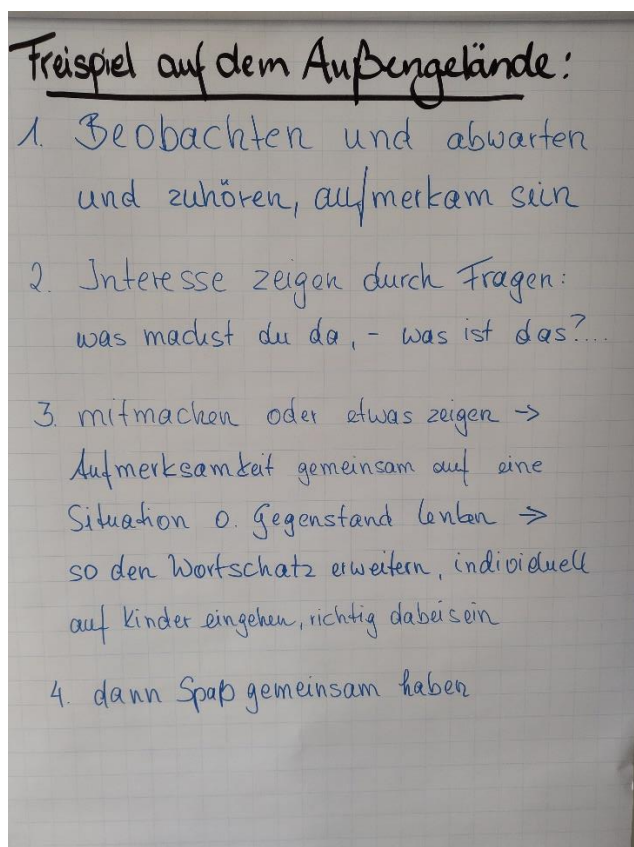 Freispiel auf dem Außengelände:
1. Beobachten und abwarten
und zuhören, aufmerkam sein
2. Interesse zeigen durch Fragen:
was machst du da, - was ist das?...
3. mitmachen oder etwas zeigen →
Aufmerksamkeit gemeinsam auf eine
Situation o. Gegenstand lenken →
so den Wortschatz erweitern, individuell
auf Kinder eingehen, richtig dabeisein
4. dann Spaß gemeinsam haben